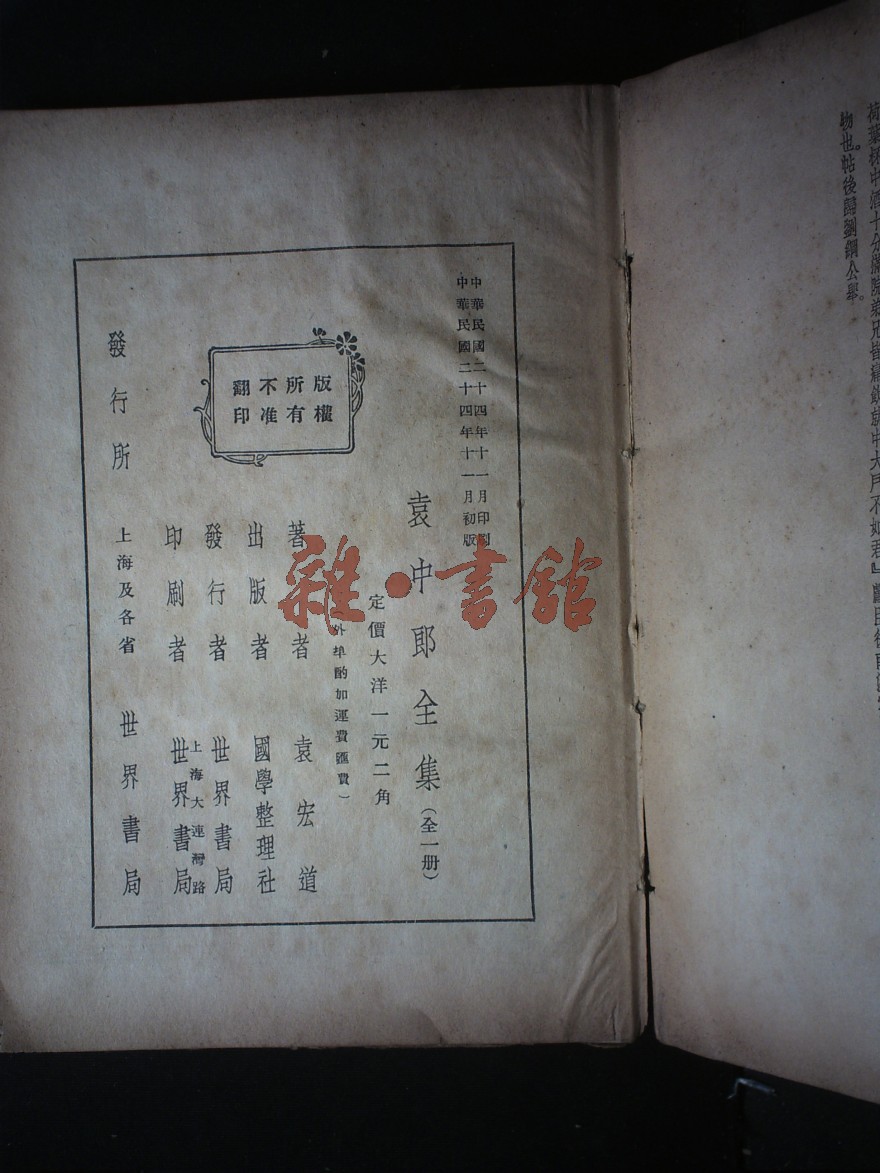 荷葉杯中酒十分滿院弟兄皆痛飲就中大戶不如君』
物也帖後歸劉鋼公舉。
中華民國二十四年十一月印刷
中華民國二十四年十一月初版
袁中郎全集(全一册)
定價大洋一元二角
外埠酌加運費匯費)
著者 袁宏道
出版者 國學整理社
發行者 世界書局
上海大連灣路
印刷者 世界書局
發行所 上海及各省 世界書局
版權
所有
不准
翻印
雜·書館